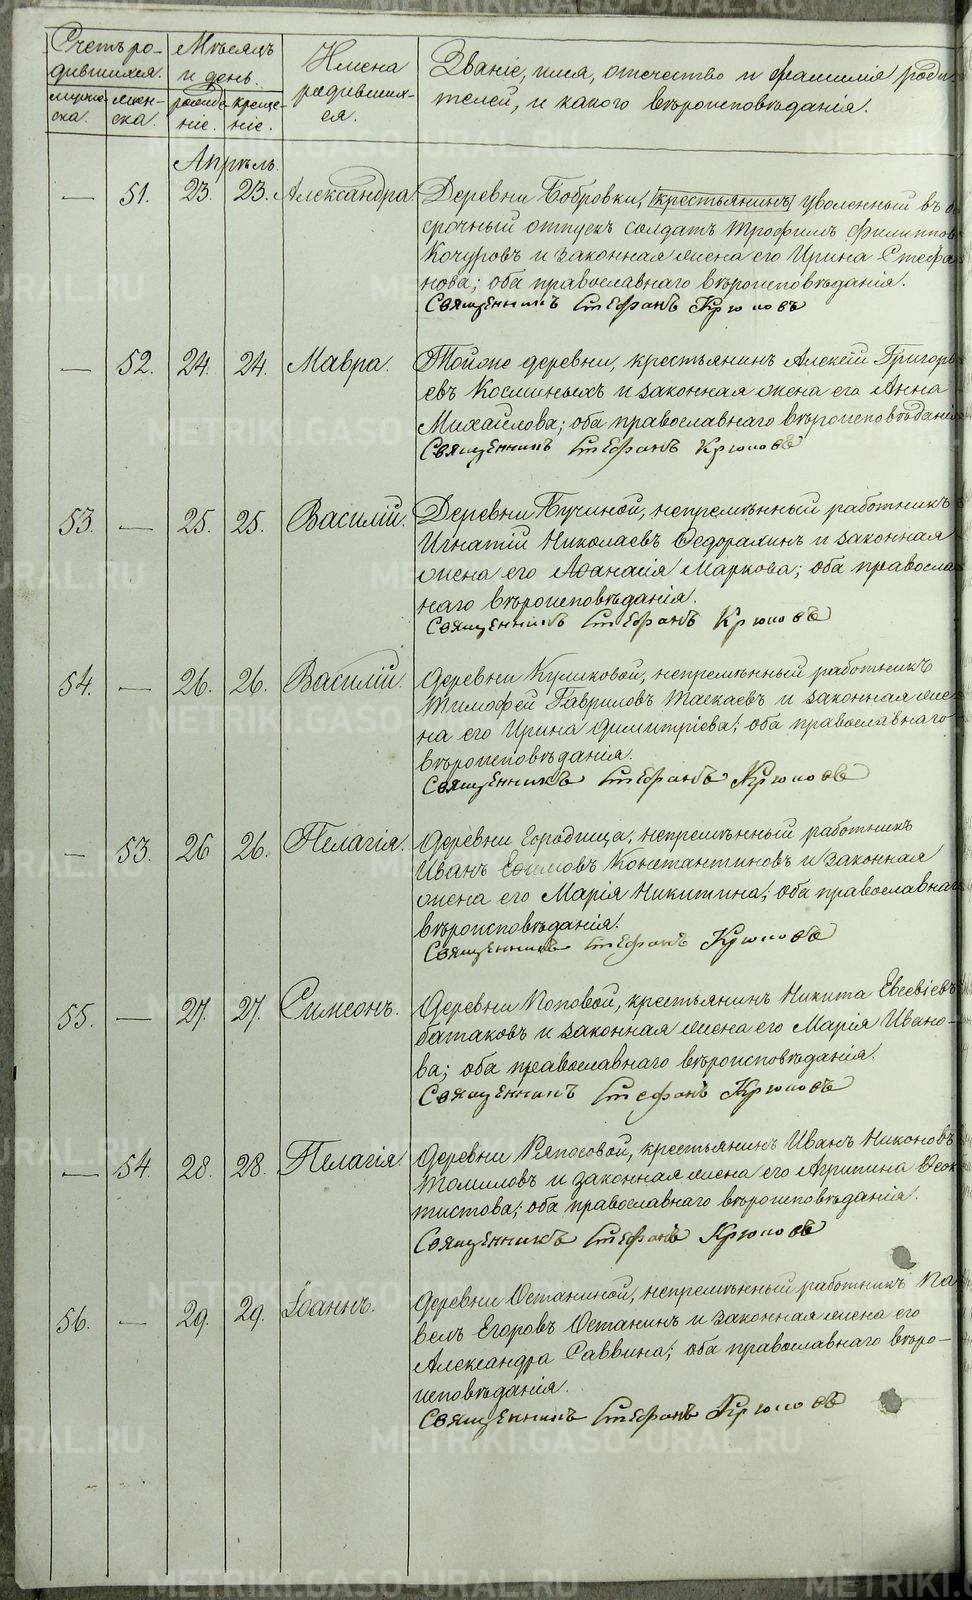 Счетъ ро-
дившихся.
Мѣсяцъ
и день.
Имена
родивших-
ся.
Званіе, имя, отечество и фамилія роди-
телей, и какого вѣроисповѣданія.
мужес-
ка.
жен-
ска.
рожде-
ніе.
креще-
ніе.
Апрѣль.
— 51. 23. 23. Александра. Деревни Бобровки, крестьянинъ уволенный въ
срочный отпускъ солдатъ Трофимъ Филиппов
Кочуровъ и законная жена его Ирина Стефа
нова; оба православнаго вѣроисповѣданія.
Священникъ Стефанъ Крюповъ
— 52. 24. 24. Мавра. Тойже деревни, крестьянинъ Алексій Григорь
евъ Косминыхъ и законная жена его Анна
Михайлова; оба православнаго вѣроисповѣданія
Священникъ Стефанъ Крюповъ
53. — 25. 25. Василій. Деревни Бучиной, непремѣнный работникъ
Игнатій Николаевъ Ѳедорахинъ и законная
жена его Аѳанасія Маркова; оба правосла
наго вѣроисповѣданія.
Священникъ Стефанъ Крюповъ
54. — 26. 26. Василій. Деревни Кушковой, непремѣнный работникъ
Тимофей Гавриловъ Таскаевъ и законная же
на его Ирина Димитріева; оба православнаго
вѣроисповѣданія.
Священникъ Стефанъ Крюповъ
— 53. 26 26. Пелагія. Деревни Городища, непремѣнный работникъ
Иванъ Ефимовъ Константиновъ и законная
жена его Марія Никитина; оба православнаг
вѣроисповѣданія.
Священникъ Стефанъ Крюповъ
55. — 27. 27. Симеонъ. Деревни Поповой, крестьянинъ Никита Евсевіевъ
Батаковъ и законная жена его Марія Ивано-
ва; оба православнаго вѣроисповѣданія.
Священникъ Стефанъ Крюповъ
— 54. 28. 28. Пелагія. Деревни Ряпосовой, крестьянинъ Иванъ Никоновъ
Томиловъ и законная жена его Агрипина Ѳеок
тистова; оба православнаго вѣроисповѣданія.
Священникъ Стефанъ Крюповъ
56. — 29. 29. Іоаннъ. Деревни Останиной, непремѣнный работникъ Па
велъ Егоровъ Останинъ и законная жена его
Александра Саввина; оба православнаго вѣро-
исповѣданія.
Священникъ Стефанъ Крюповъ
METRIKI.GASO-URAL.RU